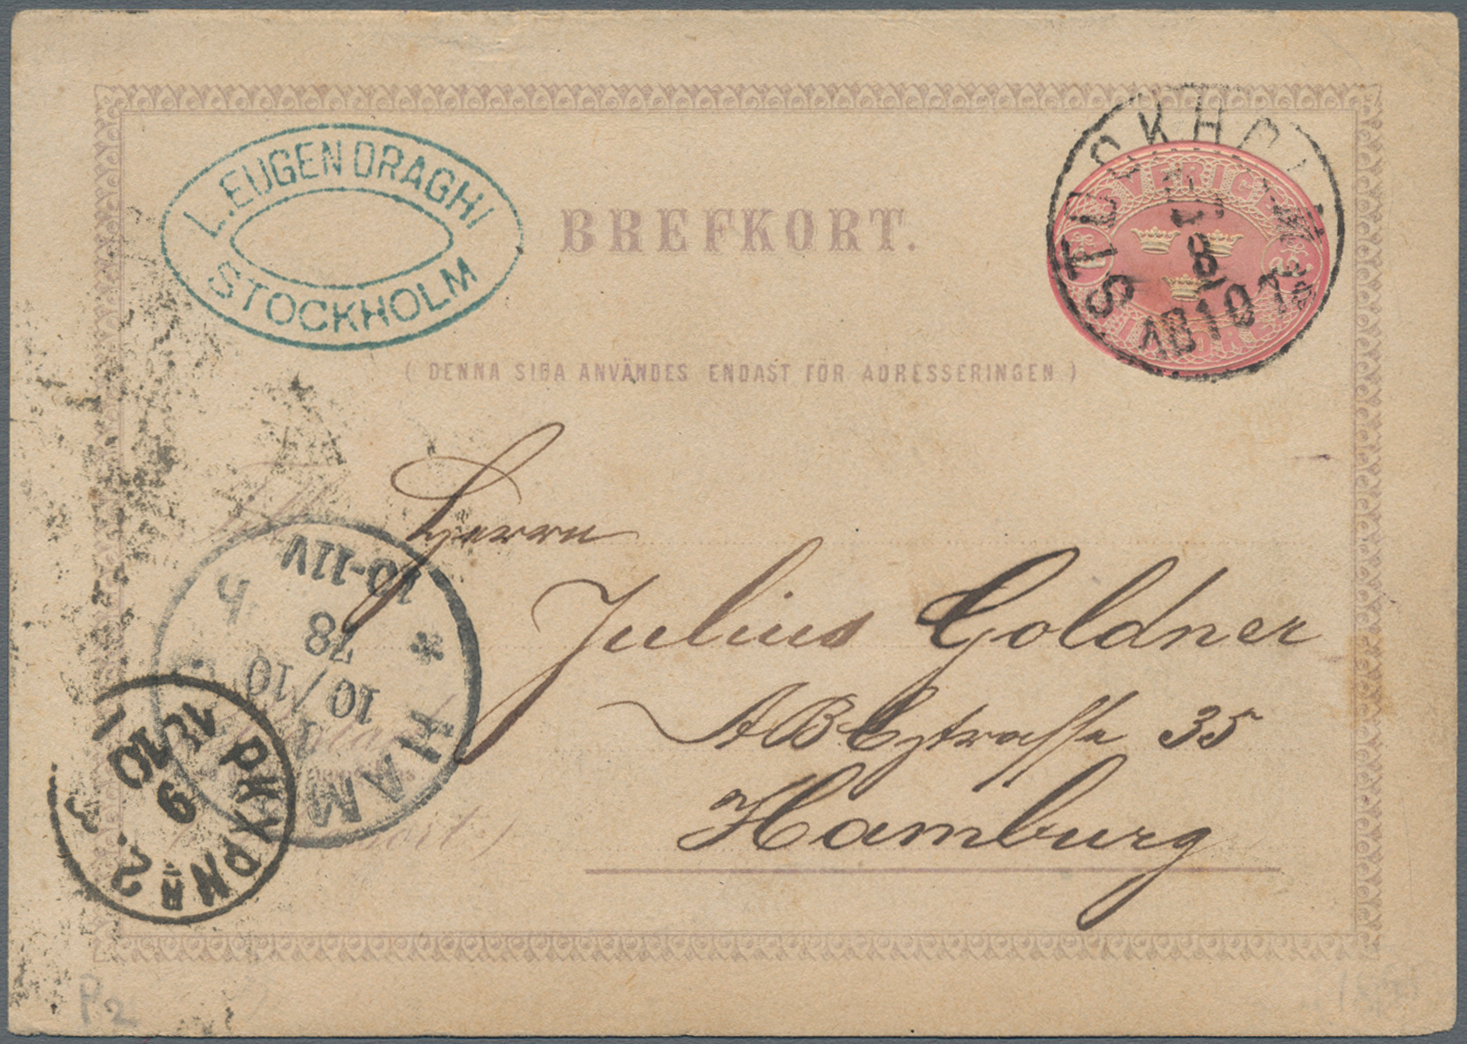 L. EUGEN DRAGHI
STOCKHOLM
BREFKORT.
STOCKHOLM
SVERIGE
8
10 7
( DENNA SIDA ANVÄNDES ENDAST FÖR ADRESSERINGEN.)
Herrn
Julius Goldner
ABCstrasse 35
Hamburg
HAM
10/10
78
10-11V
PKXPNR 2.
9
10
P2